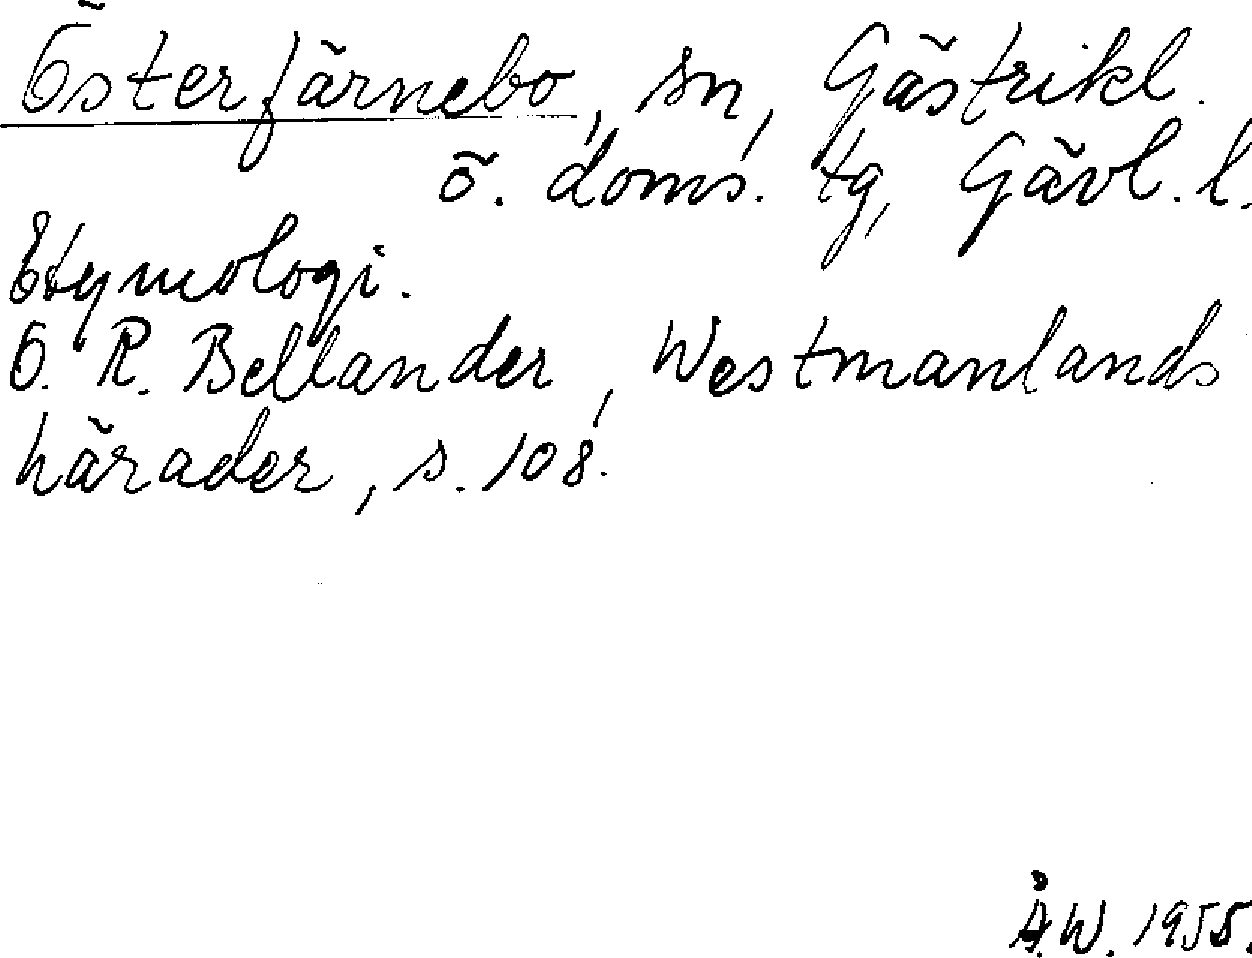 Österfärnebo, sn, Gästrikl.
ö. doms. tg, Gävl. l.
Etymologi.
O. R. Bellander, Westmanlands
härader, s. 108.
Å.W. 1955.